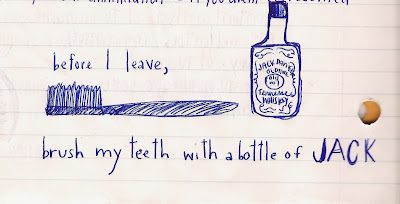 before I leave,
JACK DANIEL'S
OLD No.
Tennessee
WHISKEY
brush my teeth with a bottle of JACK